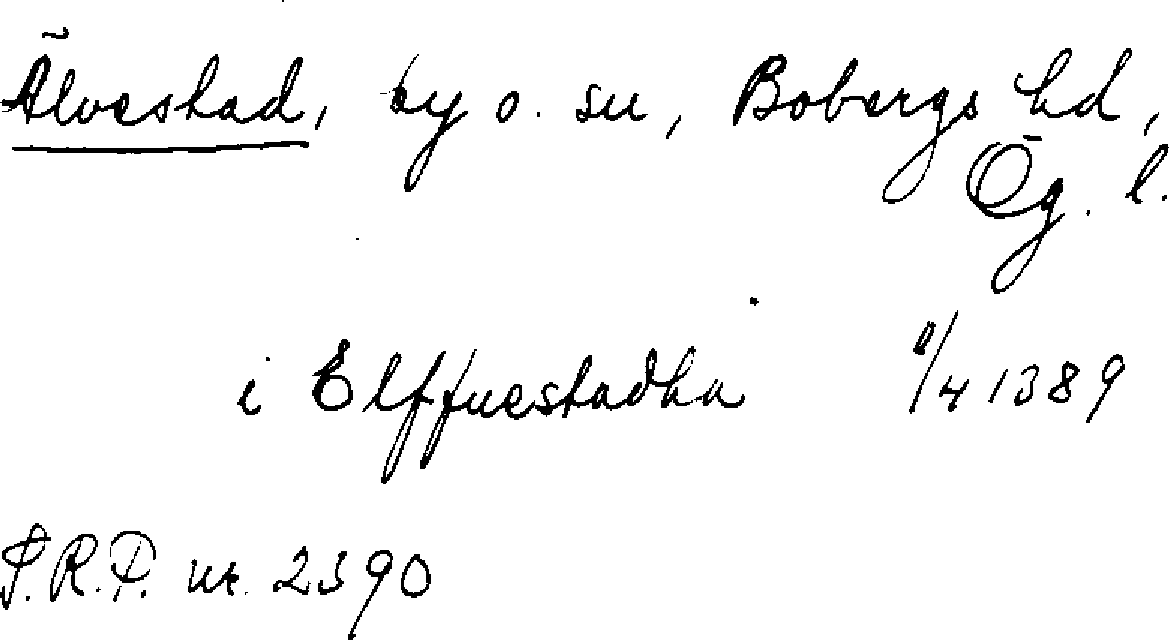 Älvestad, by o. sn, Bobergs hd,
Ög. l.
i Elffuestadha 8/4 1389
S.R.P. nr. 2390